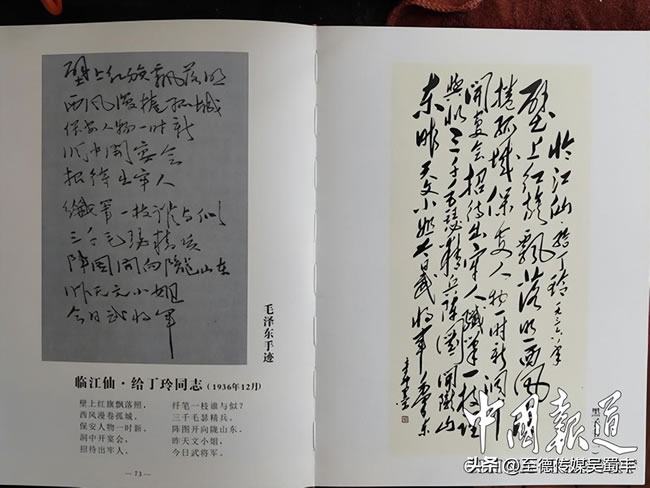 壁上红旗飘落照
西风漫捲孤城
保安人物一时新
洞中开宴会
招待出牢人
纤笔一枝谁与似
三千毛瑟精兵
阵图开向陇山东
昨天文小姐
今日武将军
毛泽东手迹
临江仙·给丁玲同志(1936年12月)
壁上红旗飘落照,
西风漫卷孤城。
保安人物一时新。
洞中开宴会,
招待出牢人。
纤笔一枝谁与似?
三千毛瑟精兵。
阵图开向陇山东。
昨天文小姐,
今日武将军。
—73—
临江仙·给丁玲
壁上红旗飘落照西风
捲孤城保安人物一时新洞中
开宴会招待出牢人
三千毛瑟精兵阵图开
东昨天文小姐今日武将军
中国报道
头条@至德传媒吴蜀丰